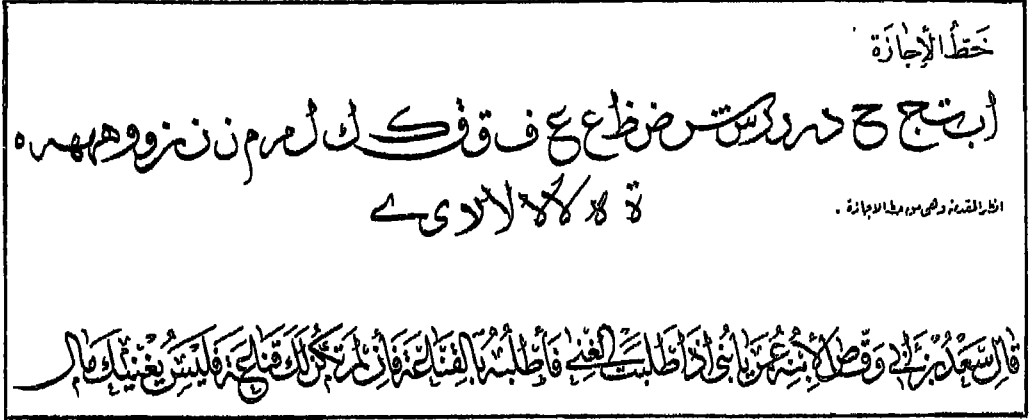 خَطُّ الْإِجَازَة
ا ب تج ح د ر و رس ش ص ظ ع غ ف ق ف ك ك ل ل م م ن ن ن ز و و ه هه ه
ة ه لا لا لا لا لا د ی ے
انظر المقدمة وهى من خط الاجازة .
قَالَ سَعْدُ بْنُ أَبِي وَقَّاصٍ لِابْنِهِ عُمَرَ يَا بُنَىَّ اِذَا طَلَبْتَ الْغِنَى فَاطْلُبْهُ بِالْقَنَاعَةِ فَاِنْ لَمْ تَكُنْ لَكَ قَنَاعَة فَلَيْسَ يُغْنِيكَ مَال